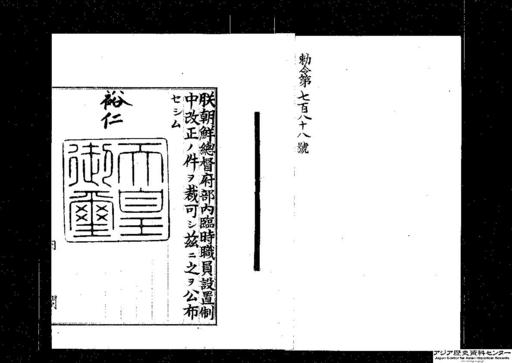 勅令第七百八十八號
朕朝鮮總督府部內臨時職員設置制
中改正ノ件ヲ裁可シ茲ニ之ヲ公布
セシム
裕仁
天皇
御璽
アジア歴史資料センター
Japan Center for Asian Historical Records